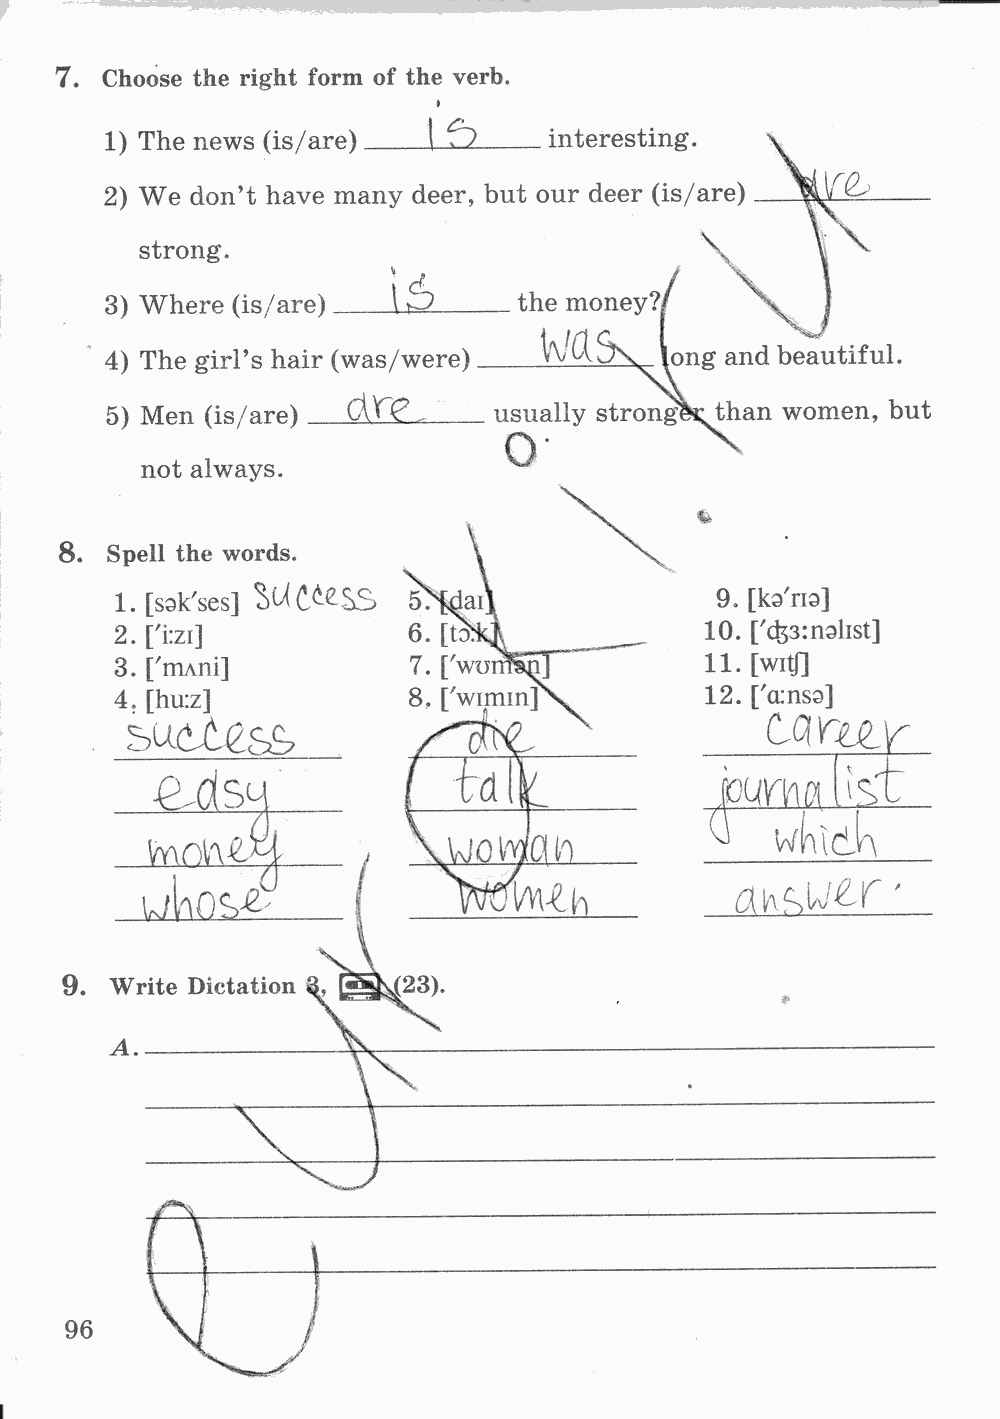 7. Choose the right form of the verb.
1) The news (is/are) is interesting.
2) We don't have many deer, but our deer (is/are) are
strong.
3) Where (is/are) is the money?
4) The girl's hair (was/were) was long and beautiful.
5) Men (is/are) are usually stronger than women, but
not always.
8. Spell the words.
1. [sək′ses] success 5. [daɪ] 9. [kə′rɪə]
2. [′i:zɪ] 6. [tɔ:k] 10. [′ʤɜ:nəlɪst]
3. [′mʌni] 7. [′wʊmən] 11. [wɪtʃ]
4. [hu:z] 8. [′wɪmɪn] 12. [′ɑ:nsə]
success die career
easy talk journalist
money woman which
whose women answer
9. Write Dictation 3, (23).
A.
96